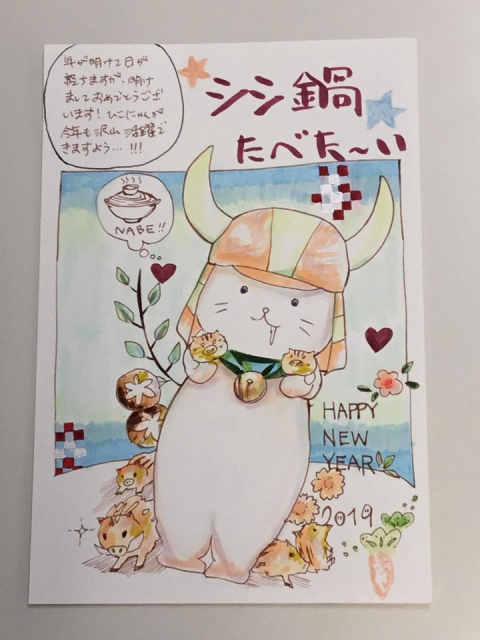 年が明けて日が
経ちますが、明け
ましておめでとうござ
います！ひこにゃんが
今年も沢山 活躍で
きますよう…!!!
シシ鍋
たべた〜い
NABE!!
HAPPY
NEW
YEAR
2019